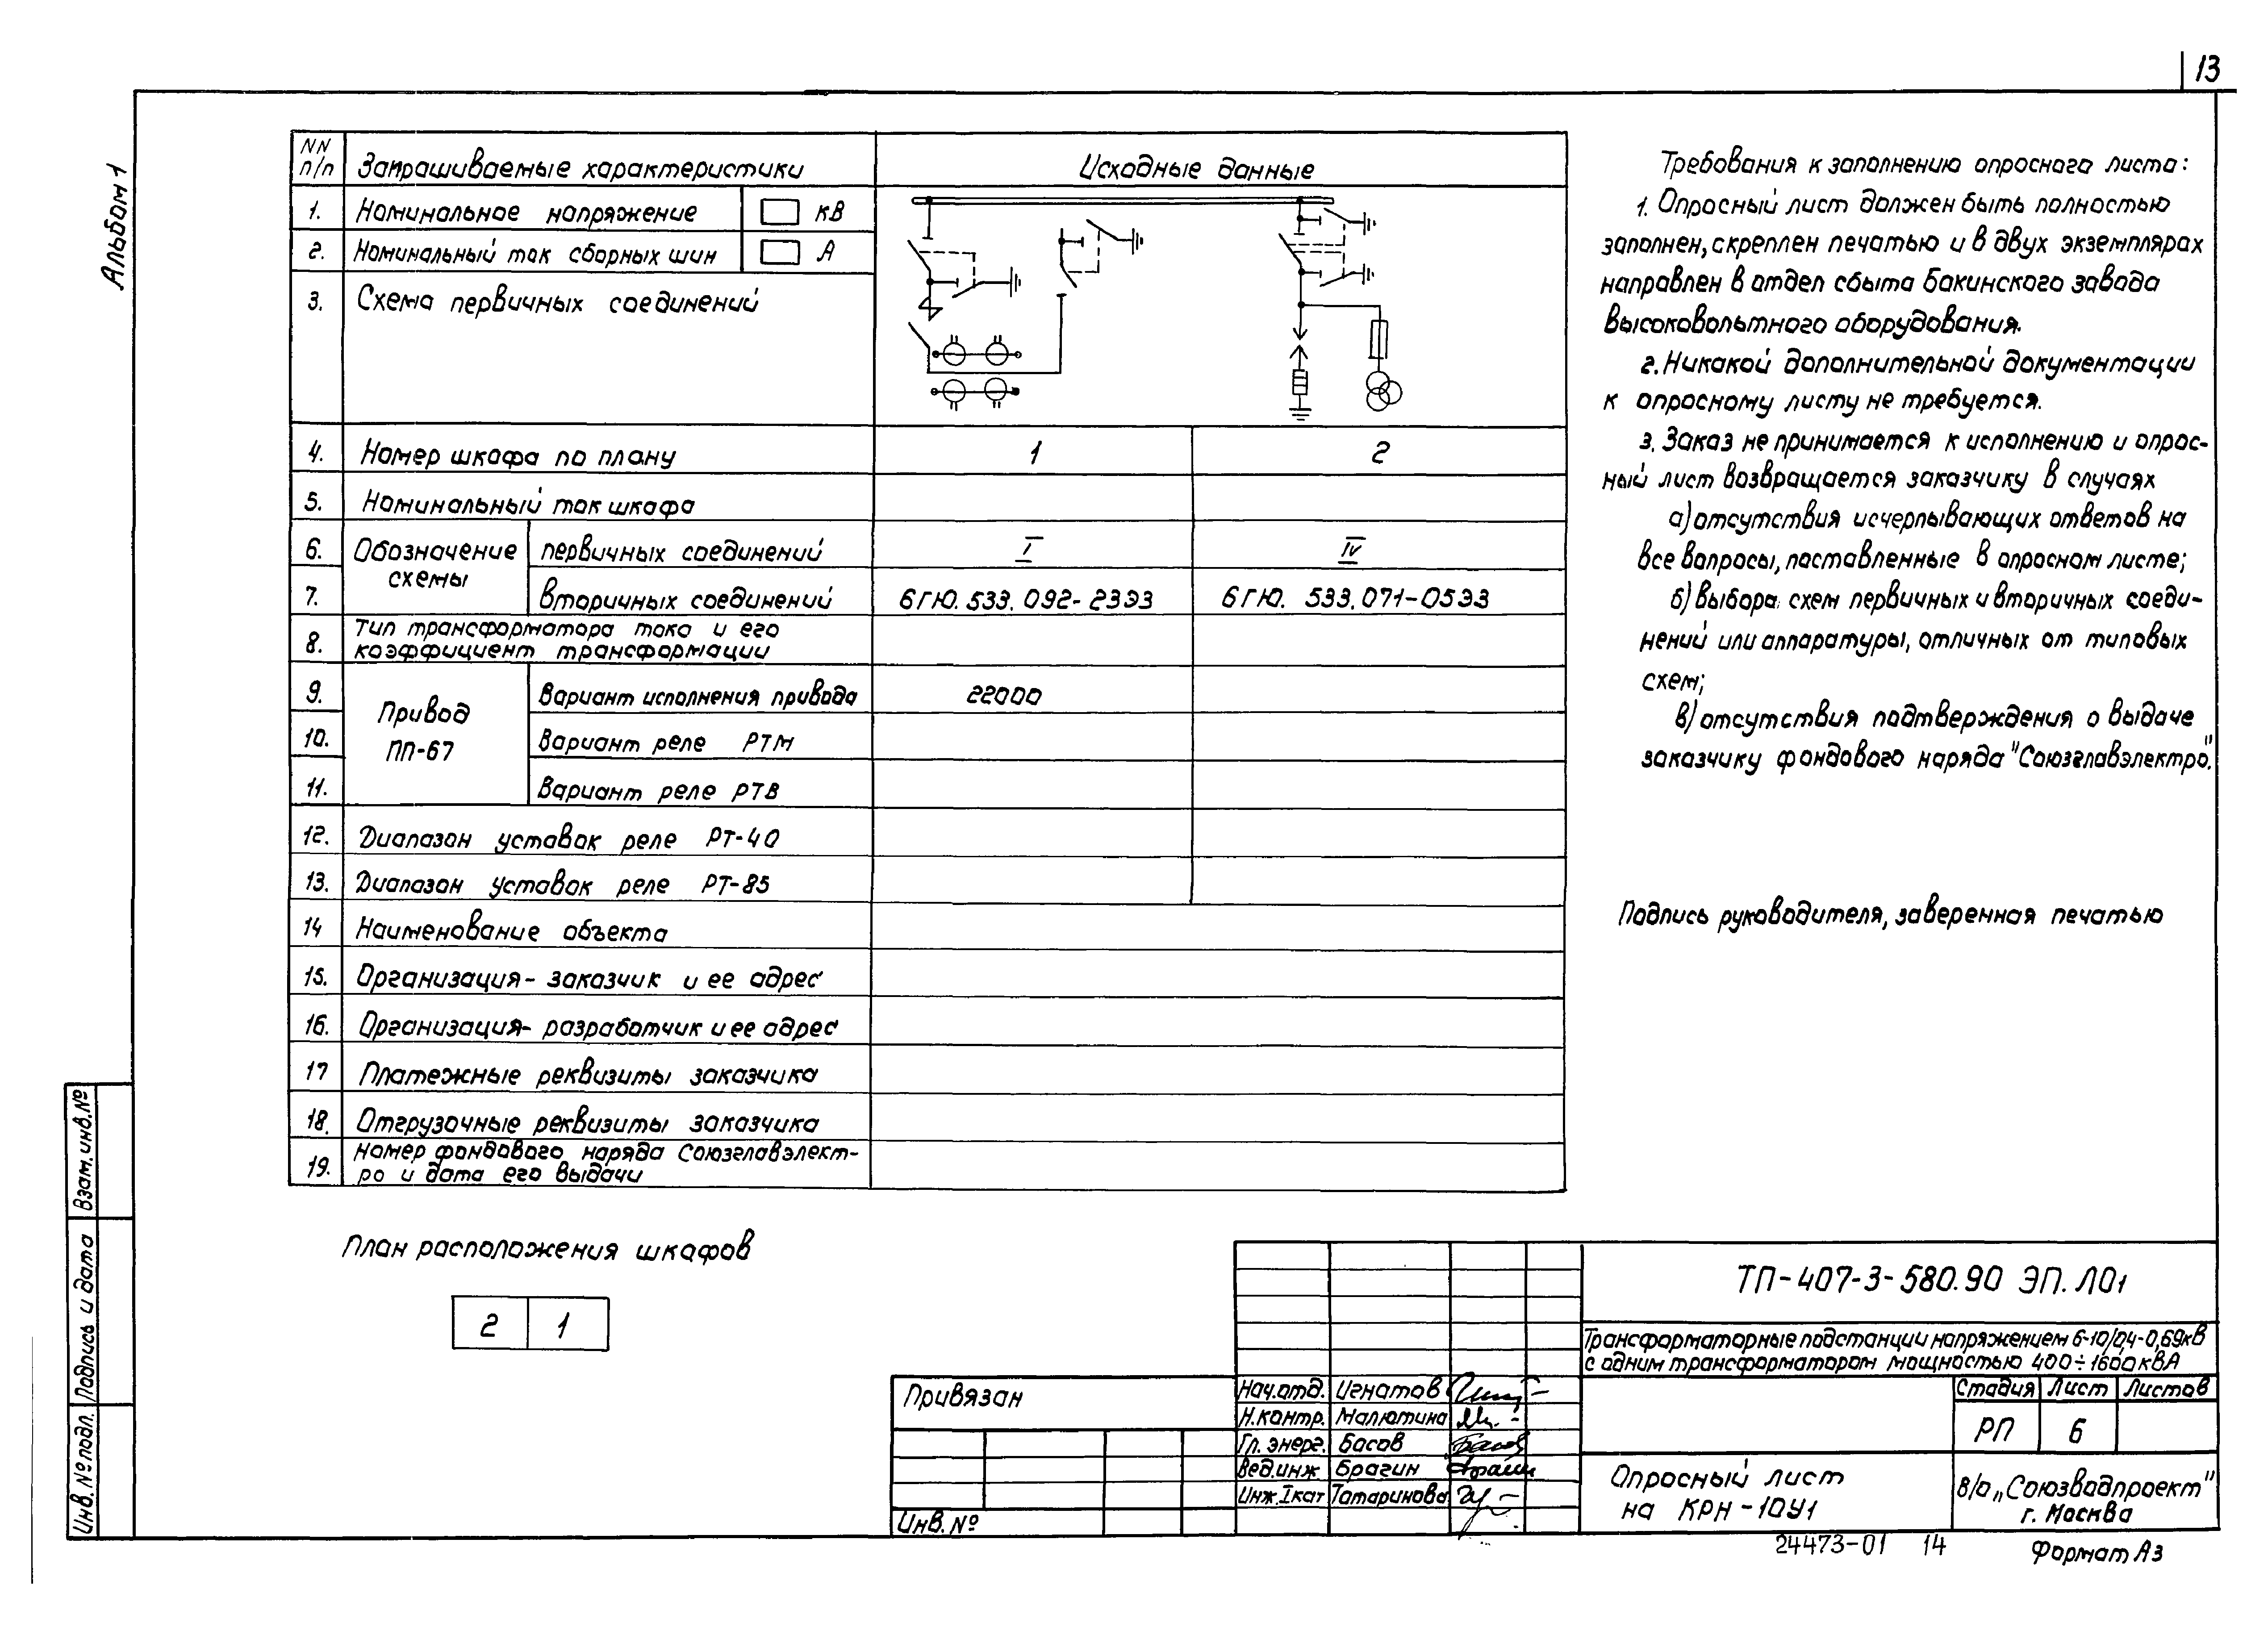 13
Альбом 1
NN п/п Запрашиваемые характеристики Исходные данные
1. Номинальное напряжение кВ
2. Номинальный ток сборных шин А
3. Схема первичных соединений
4. Номер шкафа по плану 1 2
5. Номинальный ток шкафа
Обозначение схемы
6. первичных соединений I IV
7. вторичных соединений 6ГЮ. 533. 092-23ЭЗ 6ГЮ. 533.071-05ЭЗ
8. Тип трансформатора тока и его
коэффициент трансформации
Привод
ПП-67
9. Вариант исполнения привода 22000
10. Вариант реле РТМ
11. Вариант реле РТВ
12. Диапазон уставок реле РТ-40
13. Диапазон уставок реле РТ-85
14 Наименование объекта
15. Организация-заказчик и ее адрес
16. Организация-разработчик и ее адрес
17 Платежные реквизиты заказчика
18. Отгрузочные реквизиты заказчика
19. Номер фондового наряда Союзглавэлект-
ро и дата его выдачи
Требования к заполнению опросного листа:
1. Опросный лист должен быть полностью
заполнен, скреплен печатью и в двух экземплярах
направлен в отдел сбыта Бакинского завода
высоковольтного оборудования.
2. Никакой дополнительной документации
к опросному листу не требуется.
3. Заказ не принимается к исполнению и опрос-
ный лист возвращается заказчику в случаях
а) отсутствия исчерпывающих ответов на
все вопросы, поставленные в опросном листе;
б) выбора схем первичных и вторичных соеди-
нений или аппаратуры, отличных от типовых
схем;
в) отсутствия подтверждения о выдаче
заказчику фондового наряда "Союзглавэлектро".
Подпись руководителя, заверенная печатью
План расположения шкафов
2 1
Взам. инв. №
Подпись и дата
Инв. № подл.
Привязан
Инв. №
Нач.отд. Игнатов
Н.контр. Малютина
Гл. энерг. Басов
Вед.инж Брагин
Инж. I кат Татаринова
ТП-407-3-580.90 ЭП.ЛО1
Трансформаторные подстанции напряжением 6-10/0,4-0,69кВ
с одним трансформатором мощностью 400÷1600кВА
Стадия Лист Листов
РП 6
Опросный лист
на КРН-10У1
В/О „Союзводпроект"
г. Москва
24473-01 14
Формат А3